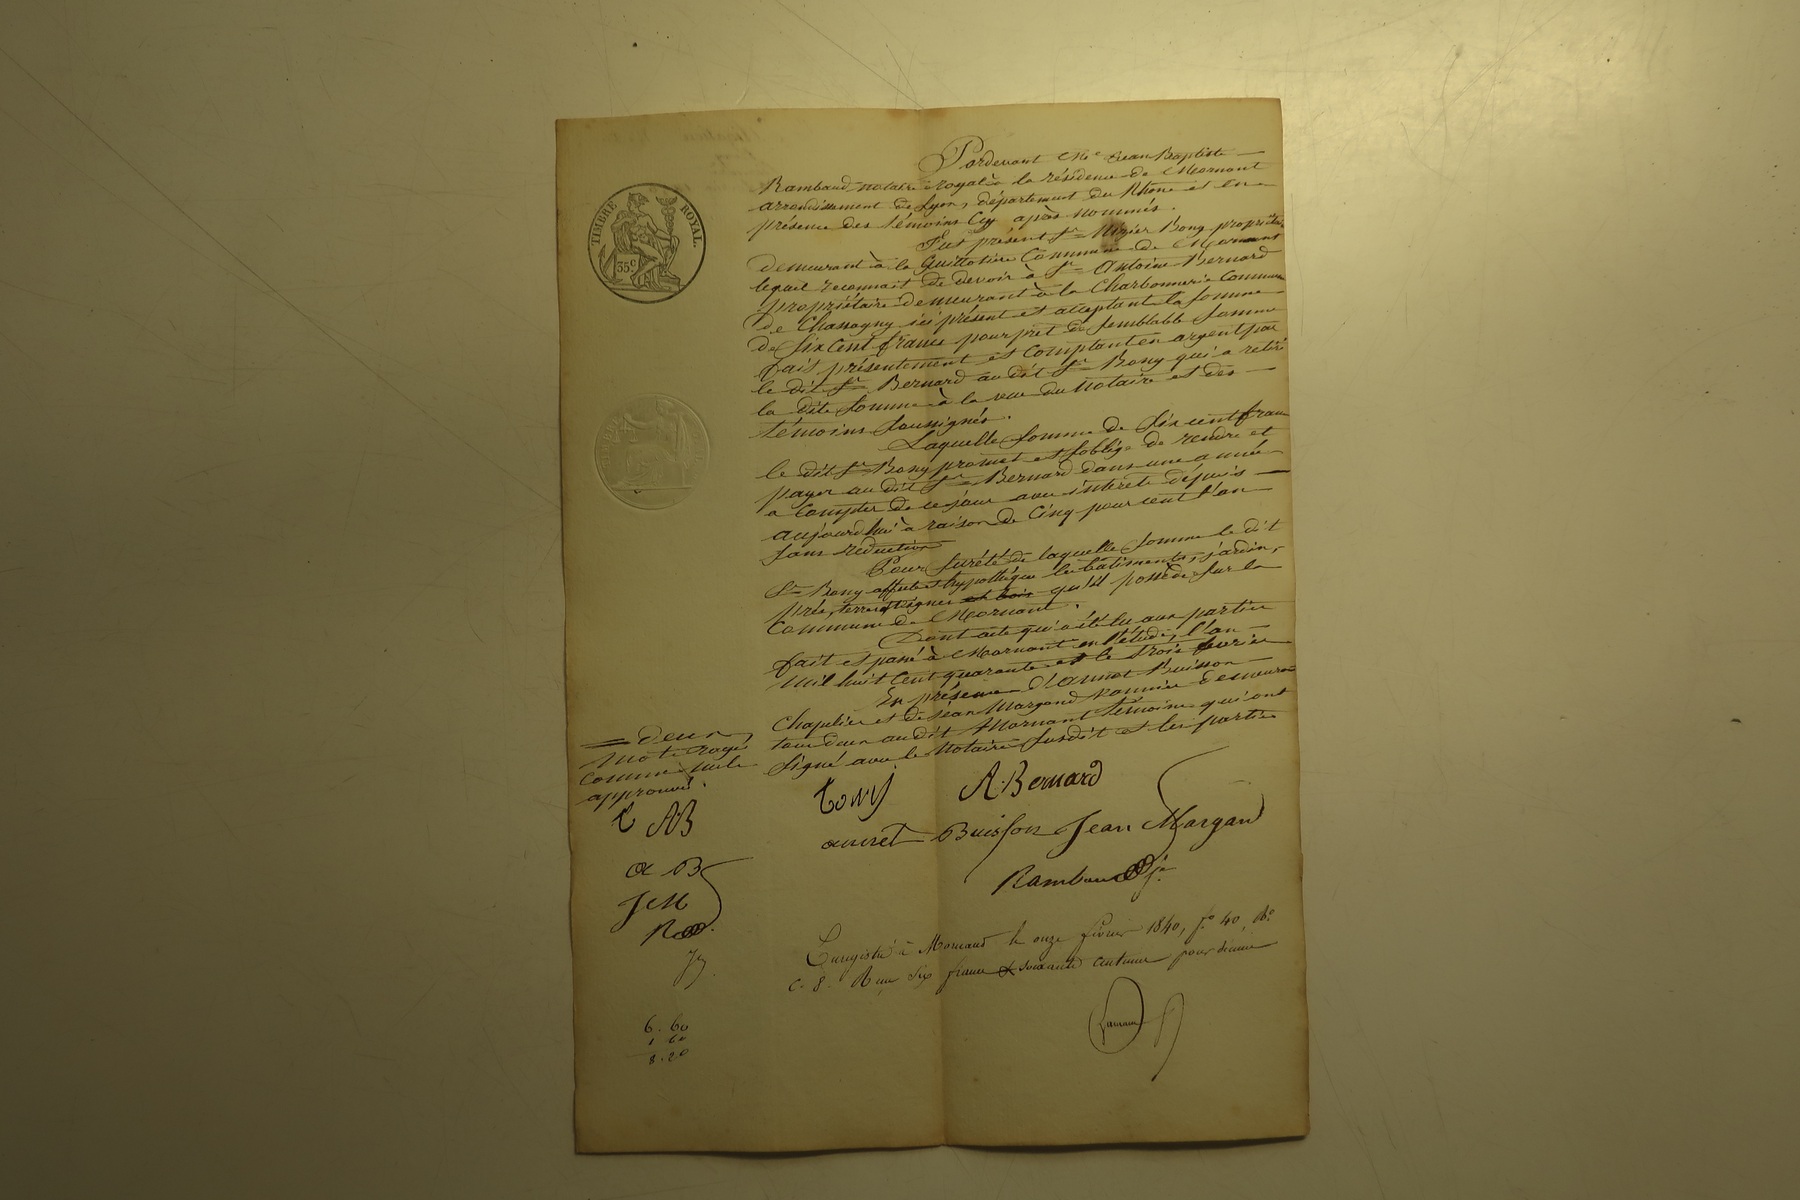 TIMBRE ROYAL.
35 c
Pardevant Me Jean Baptiste
Rambaud notaire royal à la résidence de Mornant
arrondissement de Lyon, département du Rhône et en
présence des témoins cy après nommés.
Fut présent Sr Bony propriétaire
demeurant à la Guillotière Commune de Mornant
lequel reconnait de devoir à Sr Antoine Bernard
propriétaire demeurant à la Charbonnerie Commune
de Chassagny ici présent et acceptant la somme
de Six Cent francs pour prêt de semblable somme
fait présentement et comptant en argent par
le dit Sr Bernard au dit Sr Bony qui a retiré
la dite somme à la vue du Notaire et des
témoins soussignés.
Laquelle somme de Six cent francs
le dit Sr Bony promet et s'oblige de rendre et
payer au dit Sr Bernard dans une année
a compter de ce jour avec intérêts depuis
aujourd'hui à raison de Cinq pour cent l'an
sans réduction
Pour sûreté de laquelle somme le dit
Sr Bony affecte et hypothèque les bâtiments, jardin,
prés, terres, vignes et bois qu'il possède sur la
Commune de Mornant.
Dont acte qui a été lu aux parties
fait et passé à Mornant en l'étude, l'an
mil huit Cent quarante et le trois février
En présence d'annet Buisson
Chapelier et de Jean Margand demeurant
tous deux au dit Mornant témoins qui ont
signé avec le Notaire susdit et les parties
= deux
mots rayés
comme nuls
approuvé.
A. Bernard
B AB
annet Buisson Jean Margand
a B
Rambaud
JM
R
Enregistré à Mornant le onze février 1840, fo 40, Ro
c. 8. Reçu six francs & soixante centimes pour décime
6. 60
1 60
8. 20